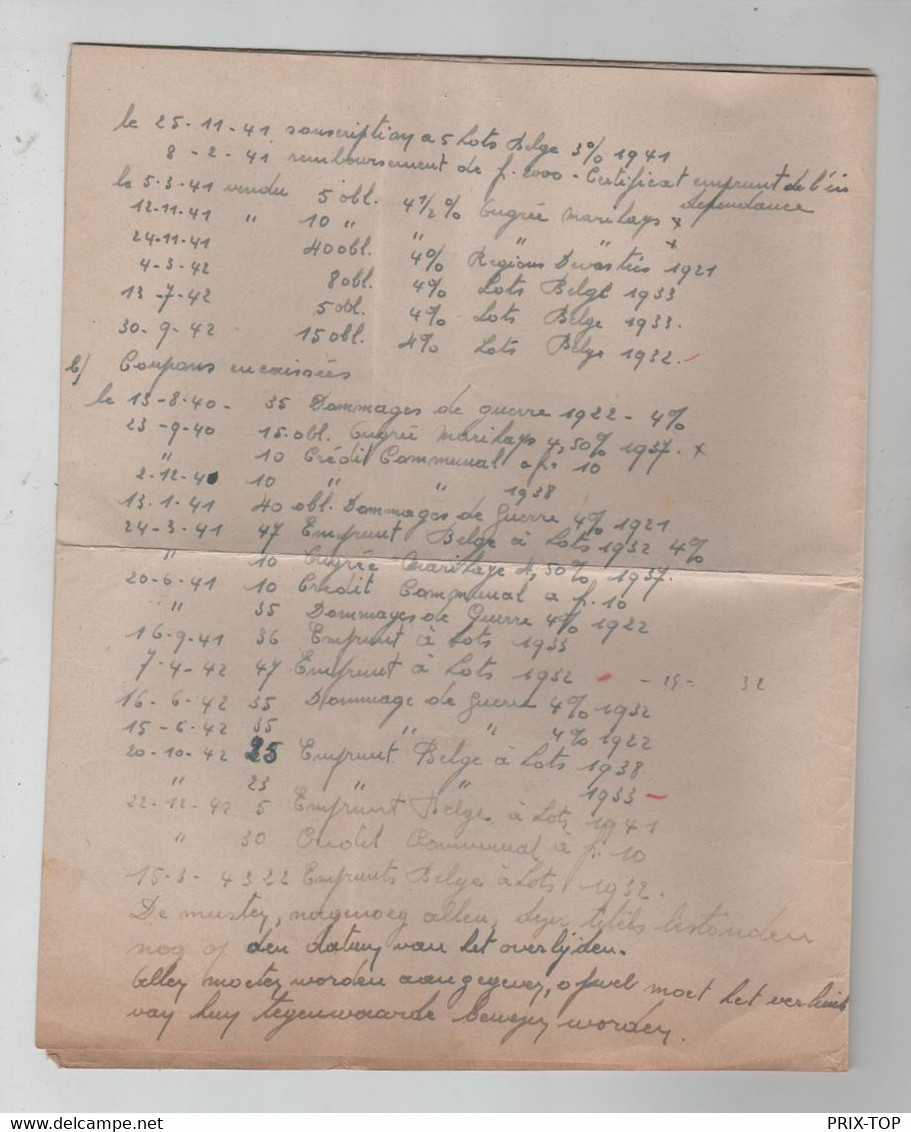 le 25-11-41 souscription a 5 Lots Belge 3% 1941
8-2-41 remboursement de f. 2000 - Certificat emprunt de l'in
dependance
le 5-3-41 vendu 5 obl. 4 1/2 % Ougrée Marihaye x
12-11-41 " 10 " " " " x
24-11-41 40 obl. 4% Régions Dévastées 1921
4-3-42 8 obl. 4% Lots Belge 1933
13-7-42 5 obl. 4% Lots Belge 1933.
30-9-42 15 obl. 4% Lots Belge 1932. -
b) Coupons encaissées
le 13-8-40 - 35 Dommages de guerre 1922 - 4%
23-9-40 15 obl. Ougrée Marihaye 4,50% 1937. x
" 10 Crédit Communal a f. 10
2-12-40 10 " " 1938
13-1-41 40 obl. Dommages de Guerre 4% 1921
24-3-41 47 Emprunt Belge à Lots 1932 4%
" 10 Ougrée Marihaye 4,50% 1937.
20-6-41 10 Crédit Communal a f. 10
" 35 Dommages de Guerre 4% 1922
16-9-41 36 Emprunt à Lots 1933
7-4-42 47 Emprunt à Lots 1932 - - 15 = 32
16-6-42 35 Dommage de Guerre 4% 1932
15-6-42 35 " " 4% 1922
20-10-42 25 Emprunt Belge à Lots 1938
" 23 " " 1933 -
22-12-42 5 Emprunt Belge à Lots 1941
" 30 Crédit Communal à f. 10
15-3-43 22 Emprunts Belge à Lots 1932.
De meesten, nagenoeg allen, dezer titels bestonden
nog op den datum van het overlijden.
Allen moeten worden aangegeven, ofwel moet het verlies
van hun tegenwaarde bewezen worden.
PRIX-TOP